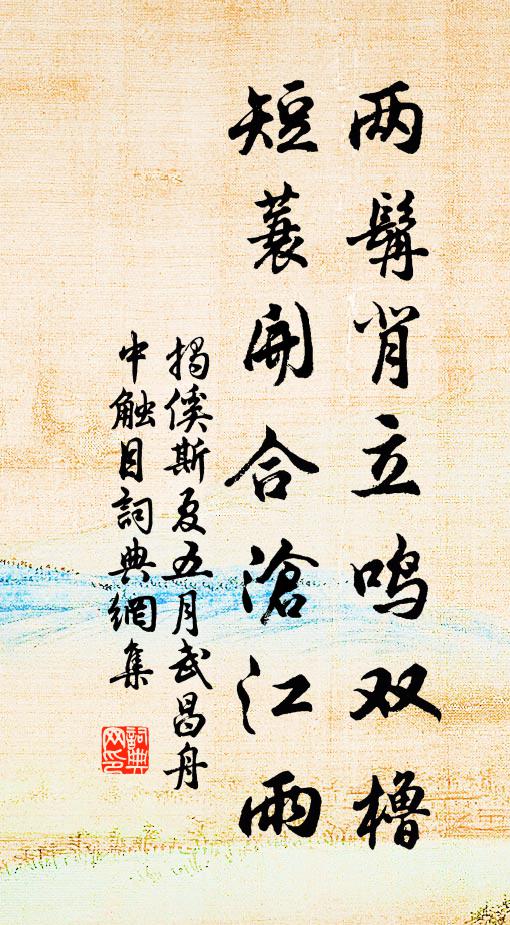 两髯背立鸣双橹
短蓑开合沧江雨
揭傒斯夏五月武昌舟
中触目詞典網集
詞典
网印